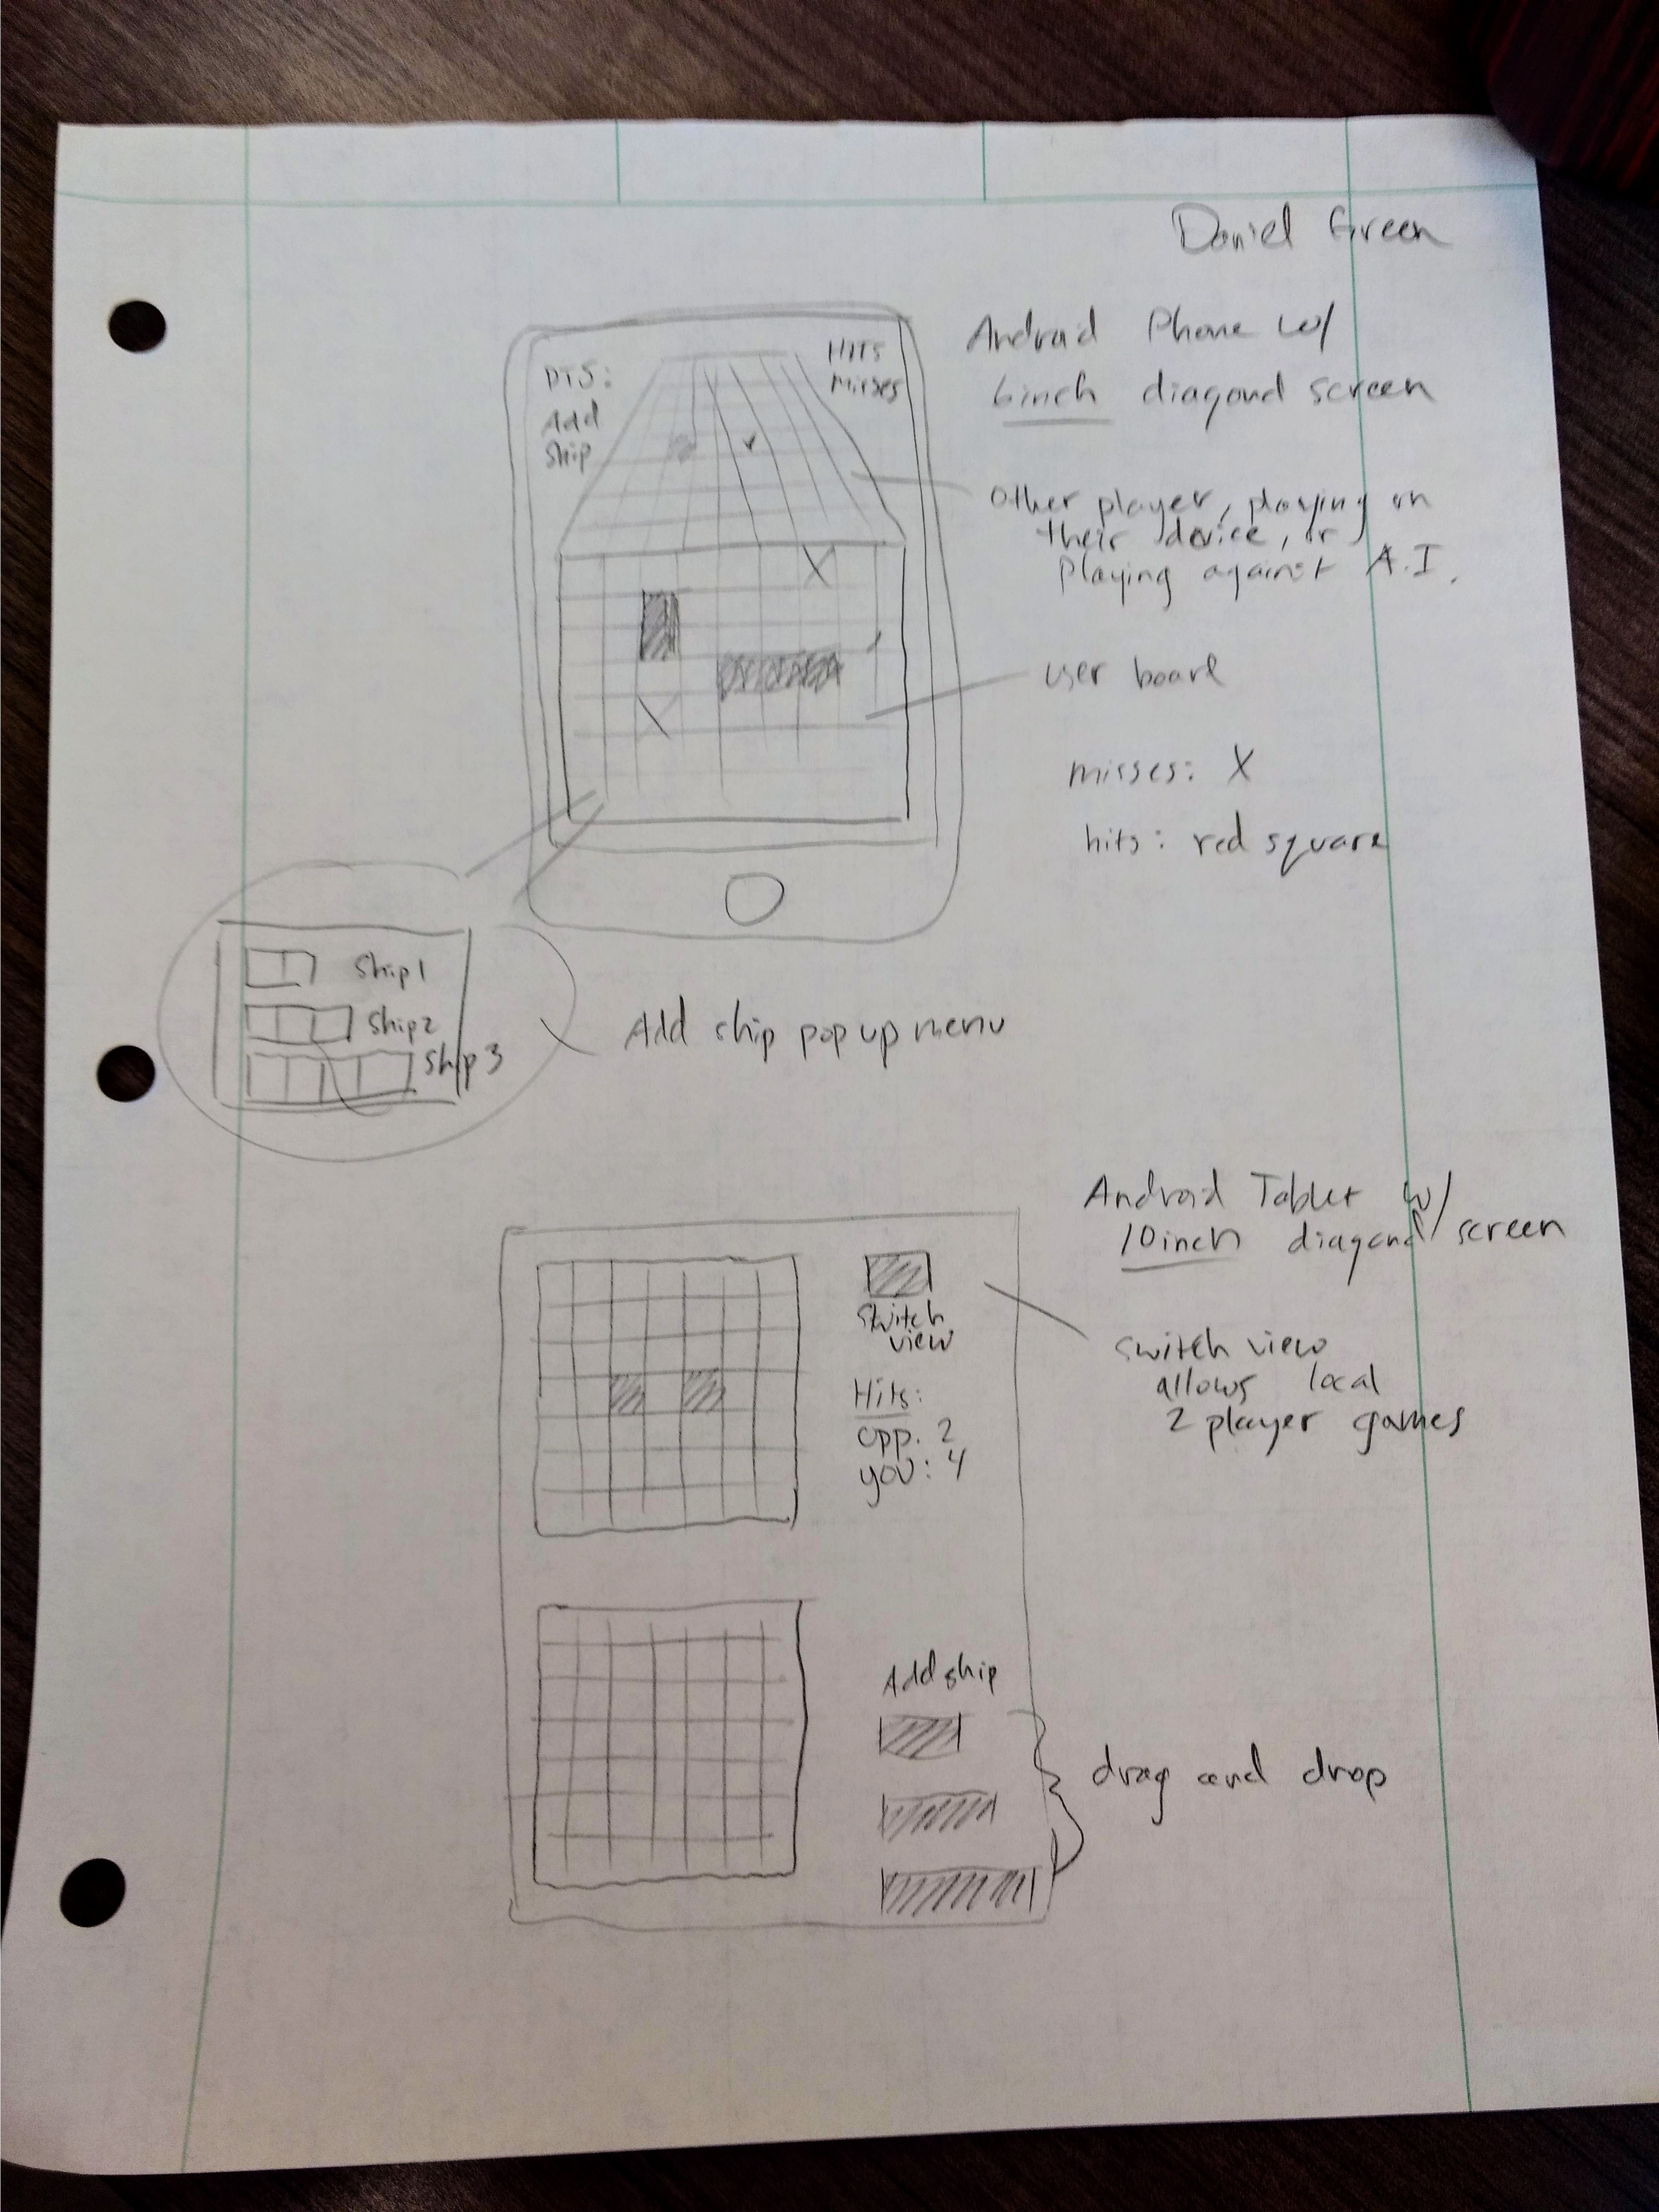 Daniel Green
Android Phone w/
6inch diagonal screen
PTS:
Add
Ship
HITS
misses
Other player, playing on
their device, or
Playing against A.I.
user board
misses: X
hits: red square
Ship1
Ship2
Ship3
Add ship popup menu
Android Tablet w/
10inch diagonal screen
Switch
view
Hits:
opp. 2
you: 4
switch view
allows local
2 player games
Add ship
drag and drop